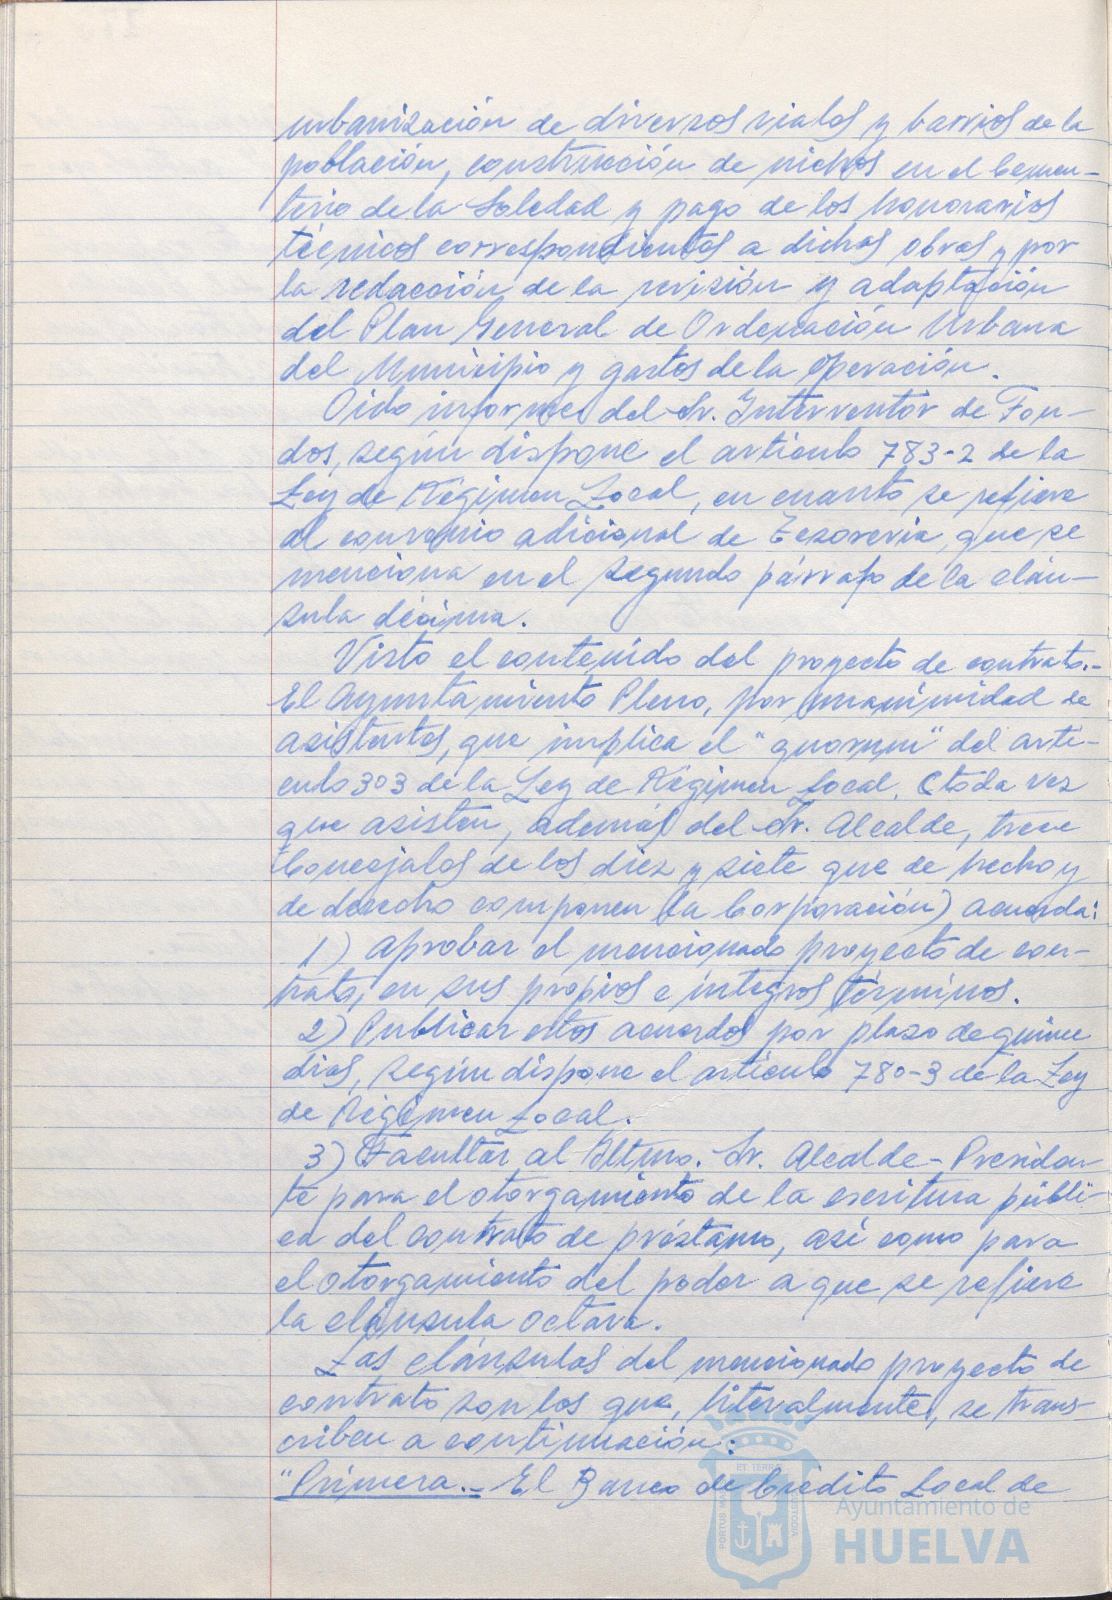 urbanización de diversos viales y barrios de la
población, construcción de nichos en el Cemen-
terio de la Soledad y pago de los honorarios
técnicos correspondientes a dichas obras y por
la redacción de la revisión y adaptación
del Plan General de Ordenación Urbana
del Municipio y gastos de la operación.
Oido informe del Sr. Interventor de Fon-
dos, según dispone el artículo 783-2 de la
Ley de Régimen Local, en cuanto se refiere
al convenio adicional de Tesorería, que se
menciona en el segundo párrafo de la cláu-
sula décima.
Visto el contenido del proyecto de contrato.-
El Ayuntamiento Pleno, por unanimidad de
asistentes, que implica el "quorum" del artí-
culo 303 de la Ley de Régimen Local, (toda vez
que asisten, además del Sr. Alcalde, trece
Concejales de los diez y siete que de hecho y
de derecho componen la Corporación) acuerda:
1) Aprobar el mencionado proyecto de con-
trato, en sus propios e íntegros términos.
2) Publicar estos acuerdos por plazo de quince
días, según dispone el artículo 780-3 de la Ley
de Régimen Local.
3) Facultar al Iltmo. Sr. Alcalde-Presiden-
te para el otorgamiento de la escritura públi-
ca del contrato de préstamo, así como para
el otorgamiento del poder a que se refiere
la cláusula octava.
Las cláusulas del mencionado proyecto de
contrato son las que, literalmente, se trans-
criben a continuación:
"Primera.- El Banco de Crédito Local de
Ayuntamiento de
HUELVA